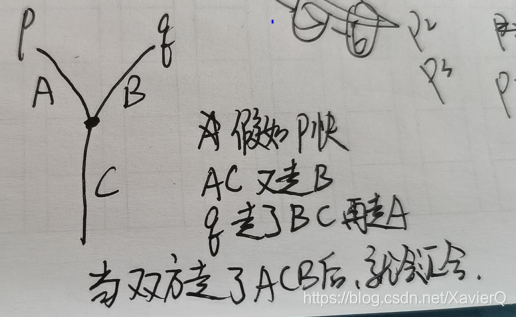 p q
A B
C
假如P快
AC又走B
q走了BC再走A
当双方走了ACB后,就会汇合.
P2
P3
https://blog.csdn.net/XavierQ